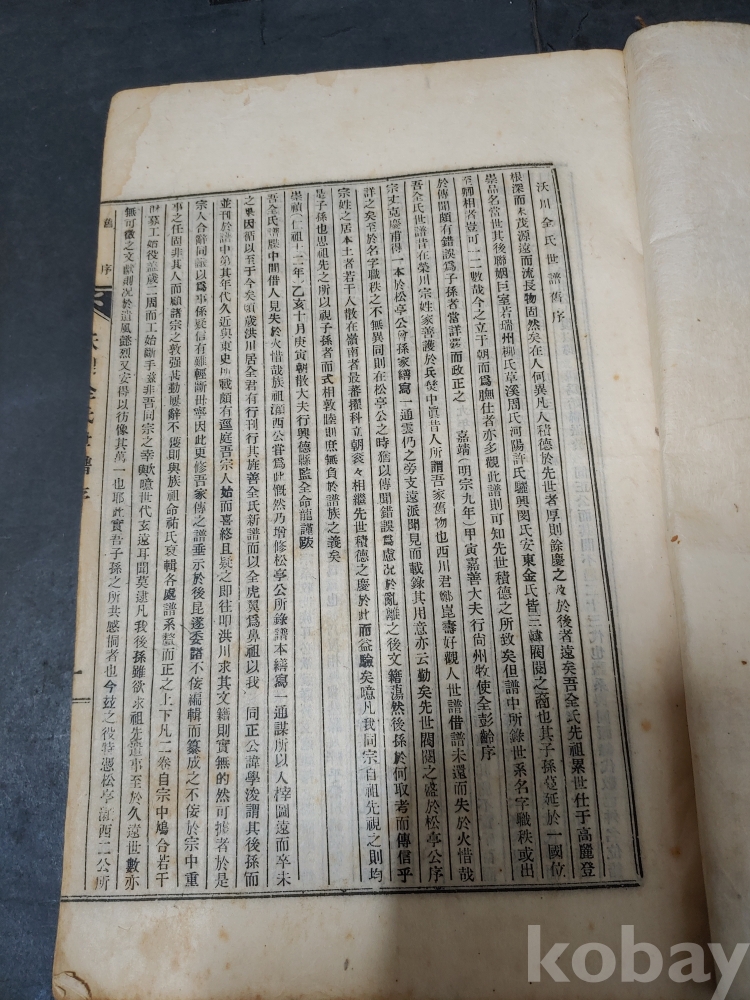 沃川全氏世譜舊序
根深而末茂源遠而流長物固然矣在人何異凡人積德於先世者厚則餘慶之及於後者遠矣吾全氏先祖累世仕于高麗登
崇品名當世其後聯姻巨室若瑞州柳氏草溪周氏河陽許氏驪興閔氏安東金氏皆三韓閥閱之裔也其子孫蔓延於一國位
至卿相者豈可一二數哉今之立于朝而爲膴仕者亦多觀此譜則可知先世積德之所致矣但譜中所錄世系名字職秩或出
於傳聞頗有錯誤爲子孫者當詳覈而政正之 嘉靖(明宗九年)甲寅嘉善大夫行尙州牧使全彭齡序
吾全氏世譜昔在榮川宗姓家善護於兵焚中眞昔人所謂吾家舊物也西川君 崑壽好觀人世譜借譜未還而失於火惜哉
宗丈克慶甫得一本於松亭公曾孫家繕寫一通雲仍之旁支遠派聞見而載錄其用意亦云勤矣先世閥閱之盛於松亭公序
詳之矣至於名字職秩之不無異同則在松亭公之時猶以傳聞錯誤爲慮况於亂離之後文籍蕩然後孫於何取考而傳信乎
宗姓之居本土者若干人散在嶺南者最蕃擢科立朝袞々相繼先世積德之慶於此而益驗矣噫凡我同宗自祖先視之則均
是子孫也思祖先之所以視子孫者而式相敦睦則庶無負於譜族之義矣
崇禎(仁祖十三年)乙亥十月庚寅朝散大夫行興德縣監全命龍謹跋
吾全氏譜牒中間借人見失於火惜哉族祖 西公甞爲此慨然乃增修松亭公所錄譜本繕寫一通謀所以入梓圖遠而卒未
之果因循以至于今矣頃歲洪川居全君有行刊行其旌善全氏新譜而以全虎翼爲鼻祖以我 同正公諱學浚謂其後孫而
並刊於譜中第其年代久近與東史所載頗有逕庭吾宗人始而喜終且疑之即往叩洪川求其文籍則實無的然可據者於是
宗人合辭同議以爲事係疑信有難輕斷世寧因此更修吾家傳之譜垂示於後昆遂委諸不侫編輯而纂成之不侫於宗中重
事之任固非其人而顧諸宗之敦强甚勤屢辭不獲則與族祖命祐氏裒輯各處譜系整而正之上下凡二卷自宗中鳩合若干
募工始役盖歲二周而工始斷手玆非吾同宗之幸歟噫世代玄遠耳聞莫逮凡我後孫雖欲求祖先遺事至於久遠世數亦
無可徵之文獻則况於遺風懿烈又安得以彷像其萬一也耶此實吾子孫之所共感慟者也今玆之役特憑松亭 西二公所
舊序
全氏世譜序
kobay